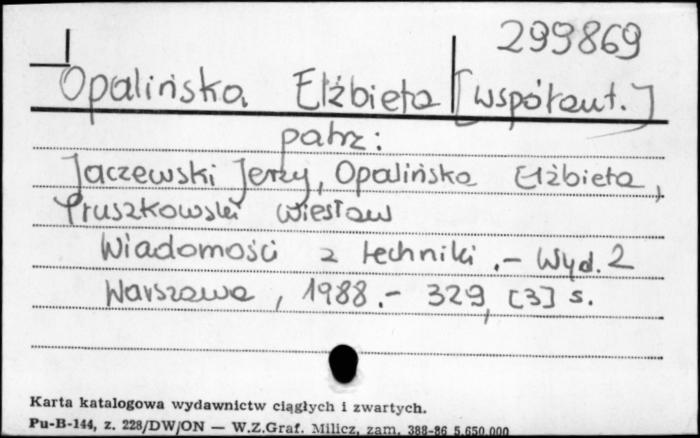 299869
Opalińska Elżbieta [współaut.]
patrz:
Jaczewski Jerzy, Opalińska Elżbieta,
Pruszkowski Wiesław
Wiadomości z techniki .- Wyd. 2
Warszawa, 1988 .- 329, [3] s.
Karta katalogowa wydawnictw ciągłych i zwartych.
Pu-B-144, z. 228/DW/ON — W.Z.Graf. Milicz, zam. 388-86 5.650.000